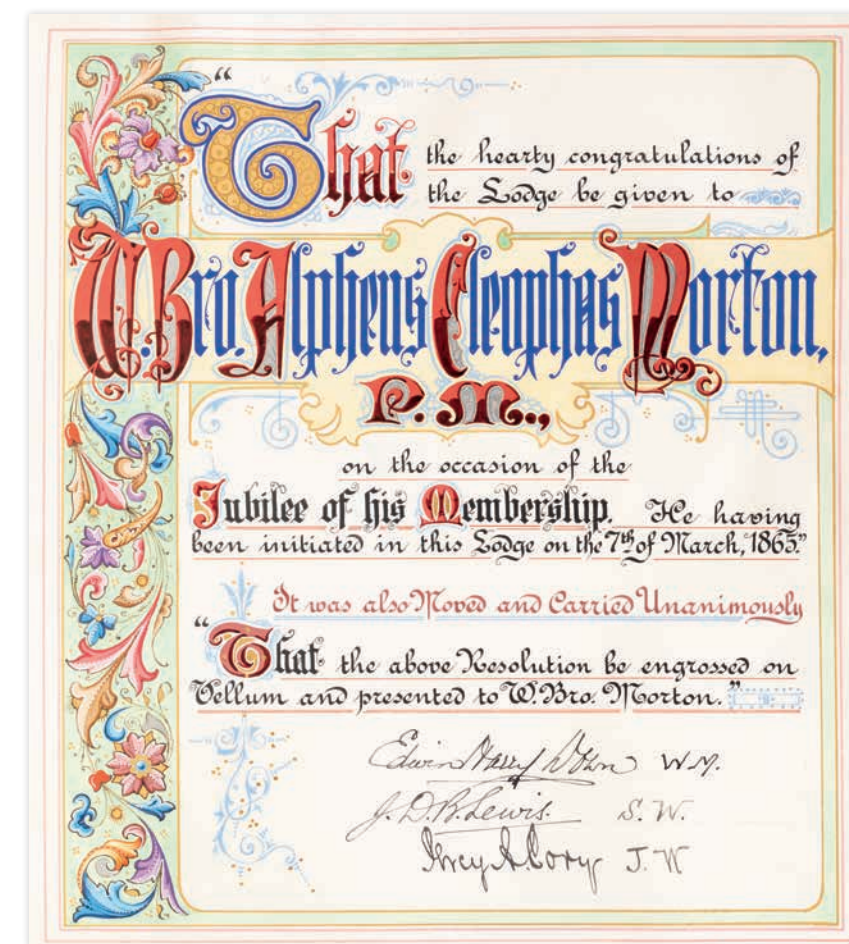 "That the hearty congratulations of
the Lodge be given to
W. Bro. Alpheus Cleophas Morton,
P. M.,
on the occasion of the
Jubilee of his Membership. He having
been initiated in this Lodge on the 7th of March, 1865."
It was also Moved and Carried Unanimously
"That the above Resolution be engrossed on
Vellum and presented to W. Bro. Morton."
Edwin Harry Down W.M.
J. D. R. Lewis. S. W.
Percy A. Cory J. W